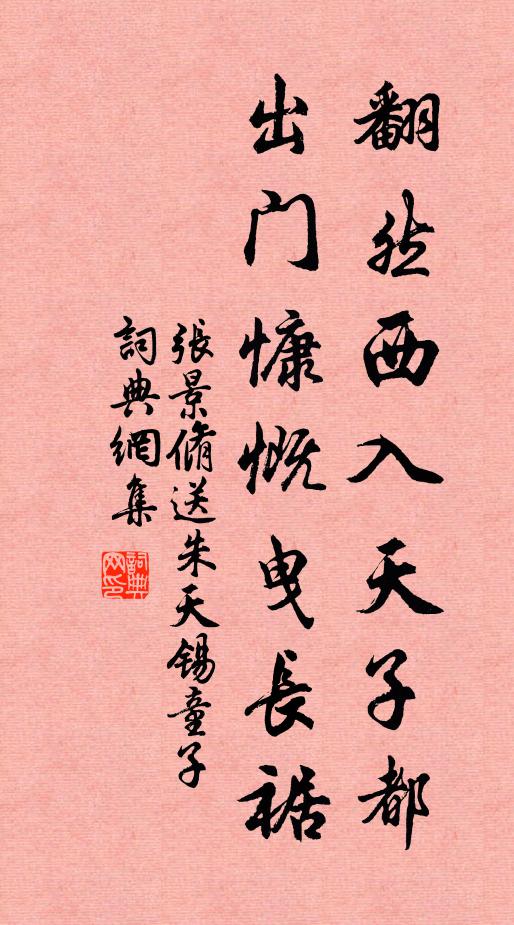 翻然西入天子都
出门慷慨曳長裾
張景脩送朱天錫童子
詞典網集
詞典网印